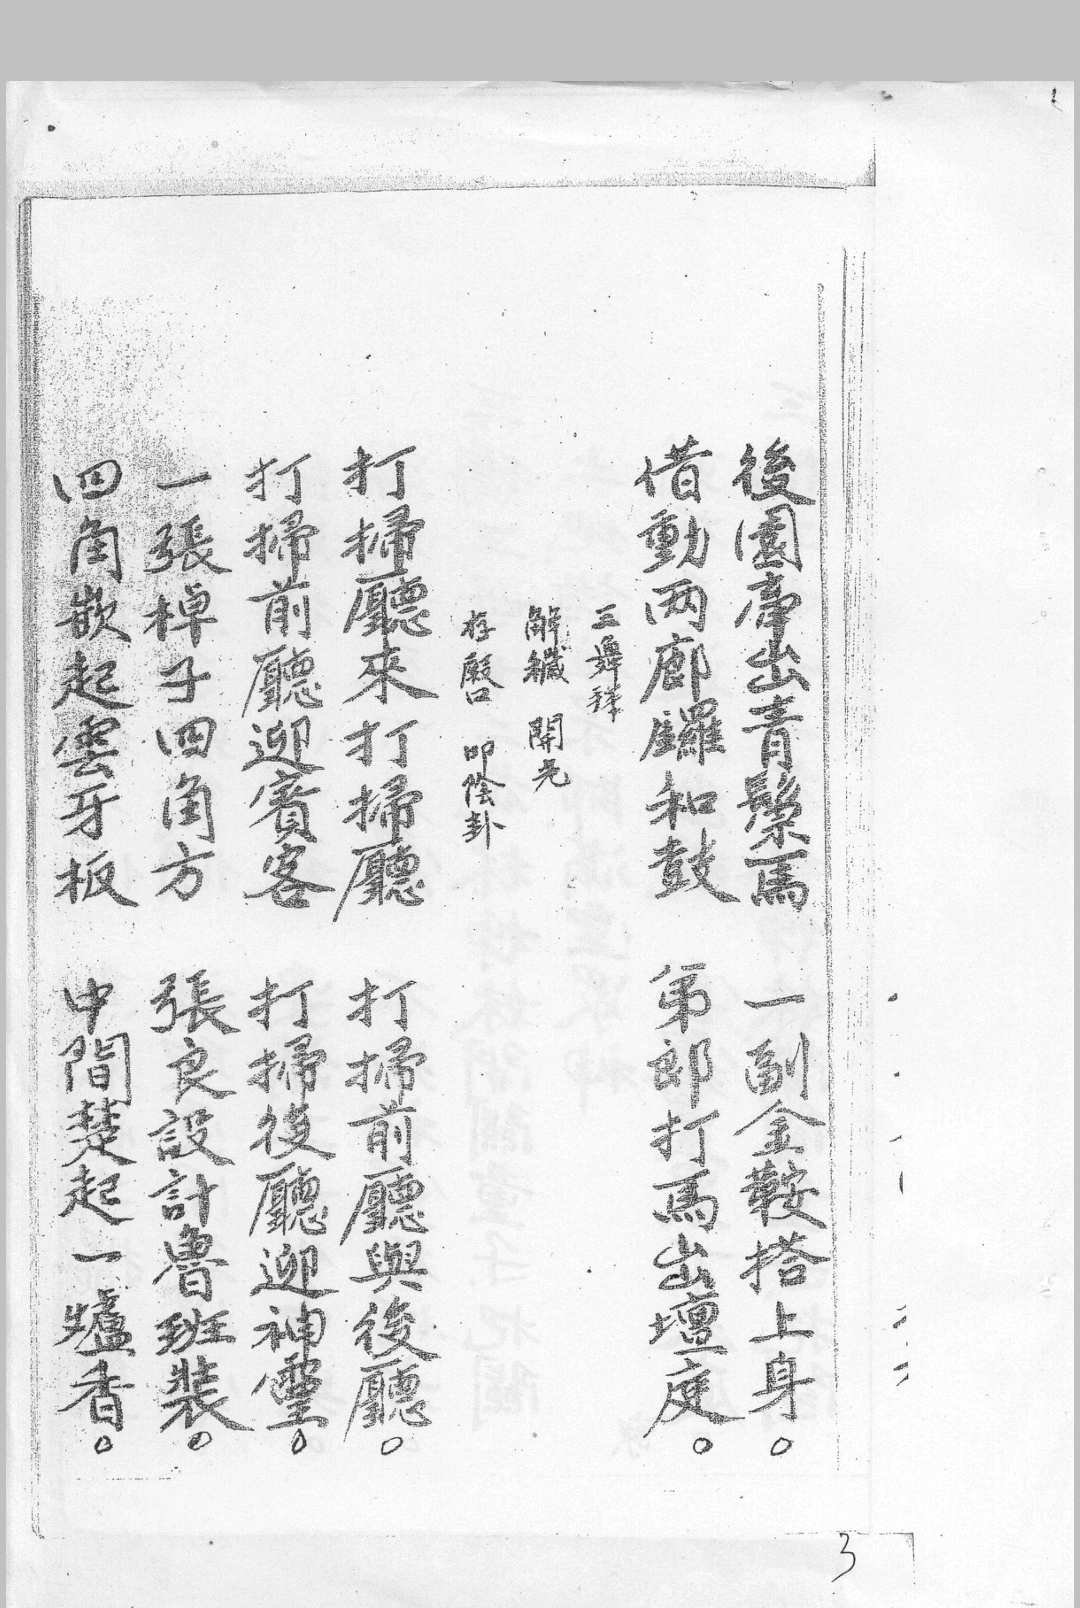 後園牽出青鬃馬 一副金鞍搭上身。
借動两廊鑼和鼓 弟郎打馬出壇庭。
三舞拜
解穢 開光
存殿口 叩陰卦
打掃廳來打掃廳 打掃前廳與後廳。
打掃前廳迎賓客 打掃後廳迎神靈。
一張棹子四角方 張良設計魯班裝。
四角嵌起雲牙板 中間焚起一爐香。
3